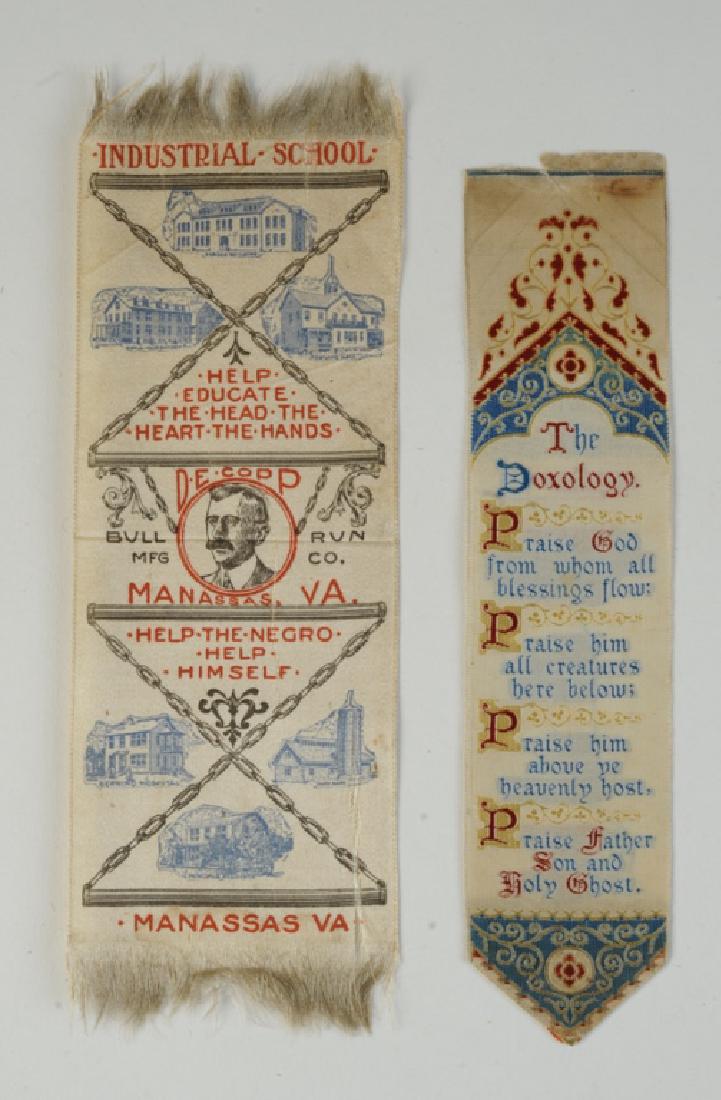 ·INDUSTRIAL·SCHOOL·
·HELP·
EDUCATE·
·THE·HEAD·THE·
HEART·THE·HANDS·
D.E.COPP
BULL RUN
MFG CO.
MANASSAS, VA.
·HELP·THE·NEGRO·
·HELP·
·HIMSELF·
·MANASSAS VA·
The
Doxology.
Praise God
from whom all
blessings flow:
Praise him
all creatures
here below;
Praise him
above ye
heavenly host,
Praise Father
Son and
Holy Ghost.